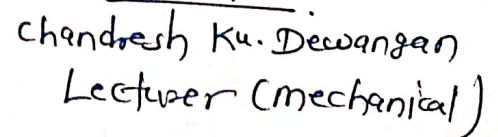 Chandresh Ku. Dewangan
Lecturer (mechanical)